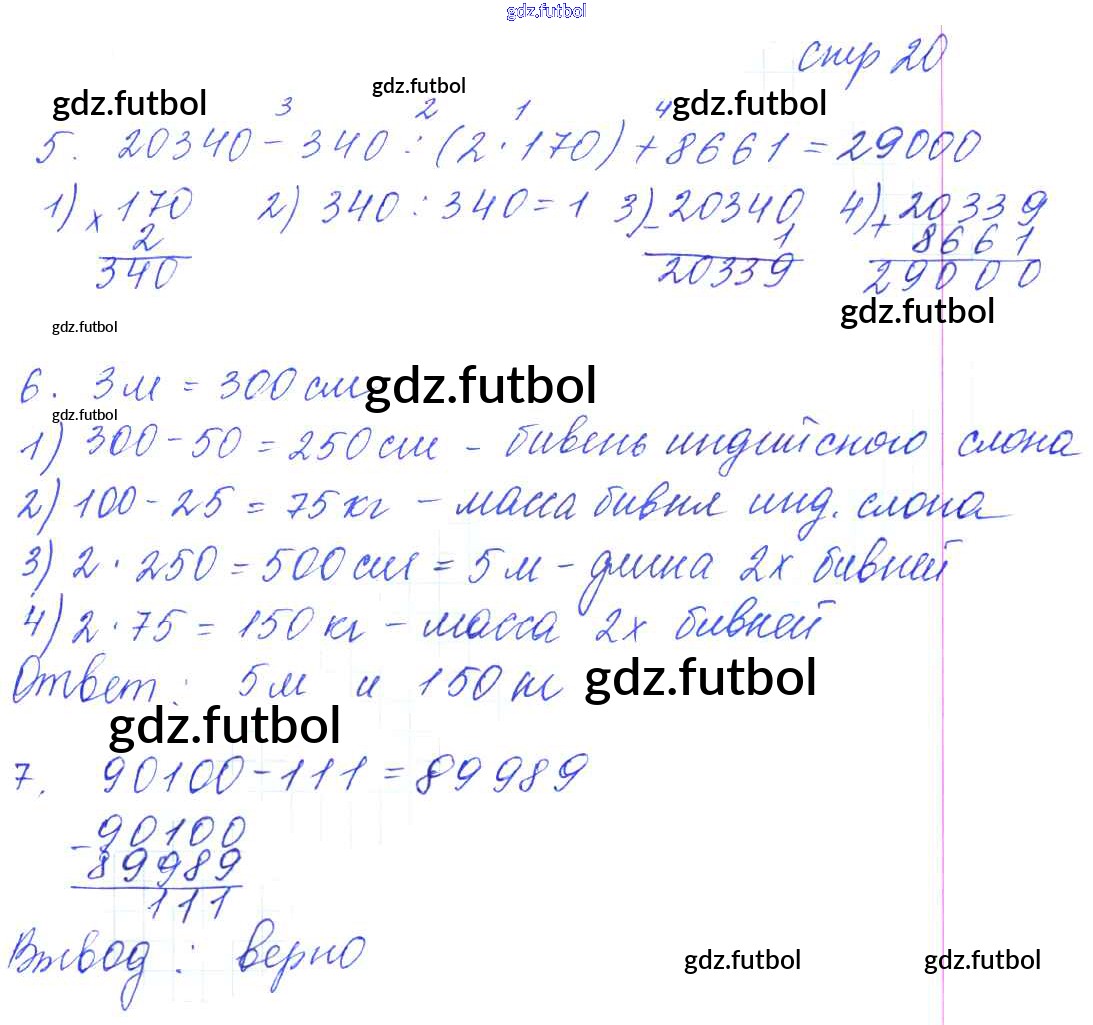 gdz.futbol
стр 20
gdz.futbol gdz.futbol gdz.futbol
3 2 1 4
5. 20340 - 340 : (2 · 170) + 8661 = 29000
1) × 170 2) 340 : 340 = 1 3) - 20340 4) + 20339
2 1 8661
340 20339 29000
gdz.futbol
gdz.futbol
6. 3 м = 300 см gdz.futbol
gdz.futbol
1) 300 - 50 = 250 см - бивень индийского слона
2) 100 - 25 = 75 кг - масса бивня инд. слона
3) 2 · 250 = 500 см = 5 м - длина 2х бивней
4) 2 · 75 = 150 кг - масса 2х бивней
Ответ: 5 м и 150 кг gdz.futbol
gdz.futbol
7. 90100 - 111 = 89989
- 90100
89989
111
Вывод: верно
gdz.futbol gdz.futbol